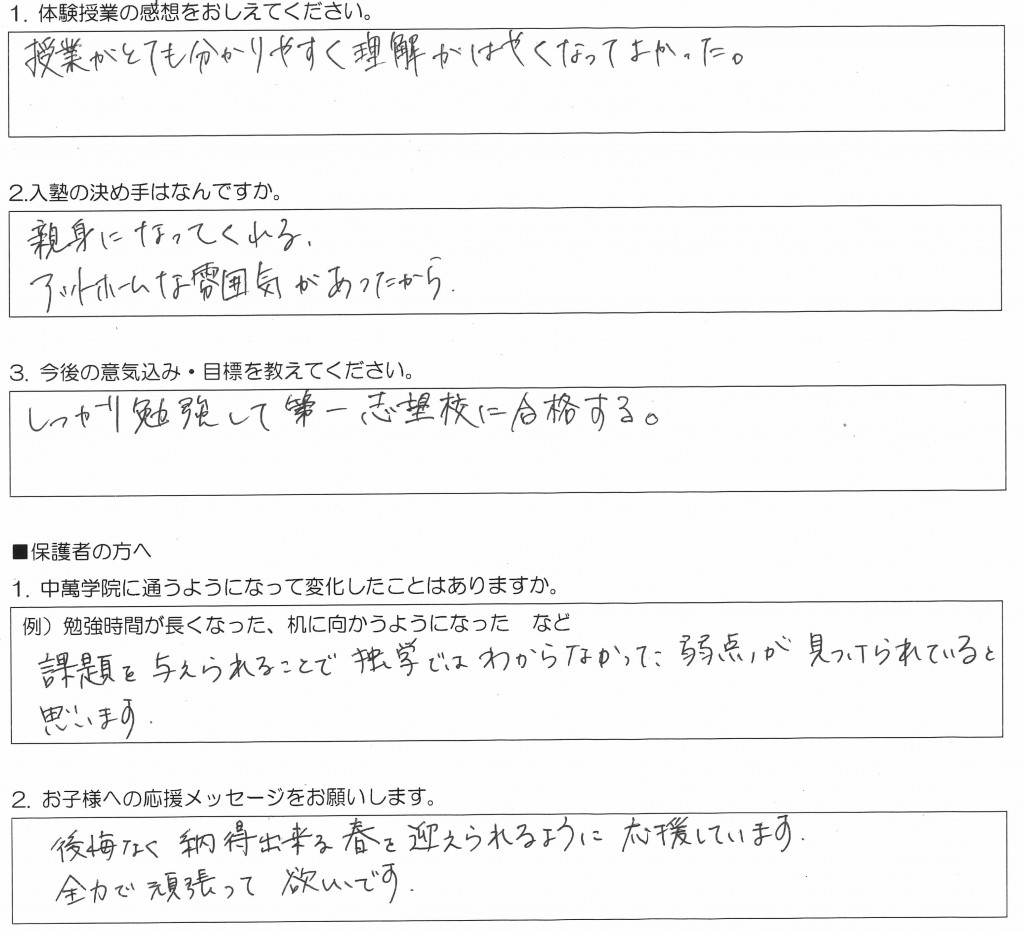 1. 体験授業の感想をおしえてください。
授業がとても分かりやすく理解がはやくなってよかった。
2.入塾の決め手はなんですか。
親身になってくれる、
アットホームな雰囲気があったから.
3. 今後の意気込み・目標を教えてください。
しっかり勉強して第一志望校に合格する。
■保護者の方へ
1. 中萬学院に通うようになって変化したことはありますか。
例）勉強時間が長くなった、机に向かうようになった　など
課題を与えられることで独学ではわからなかった弱点が見つけられていると
思います.
2. お子様への応援メッセージをお願いします。
後悔なく納得出来る春を迎えられるように応援しています.
全力で頑張って欲しいです.